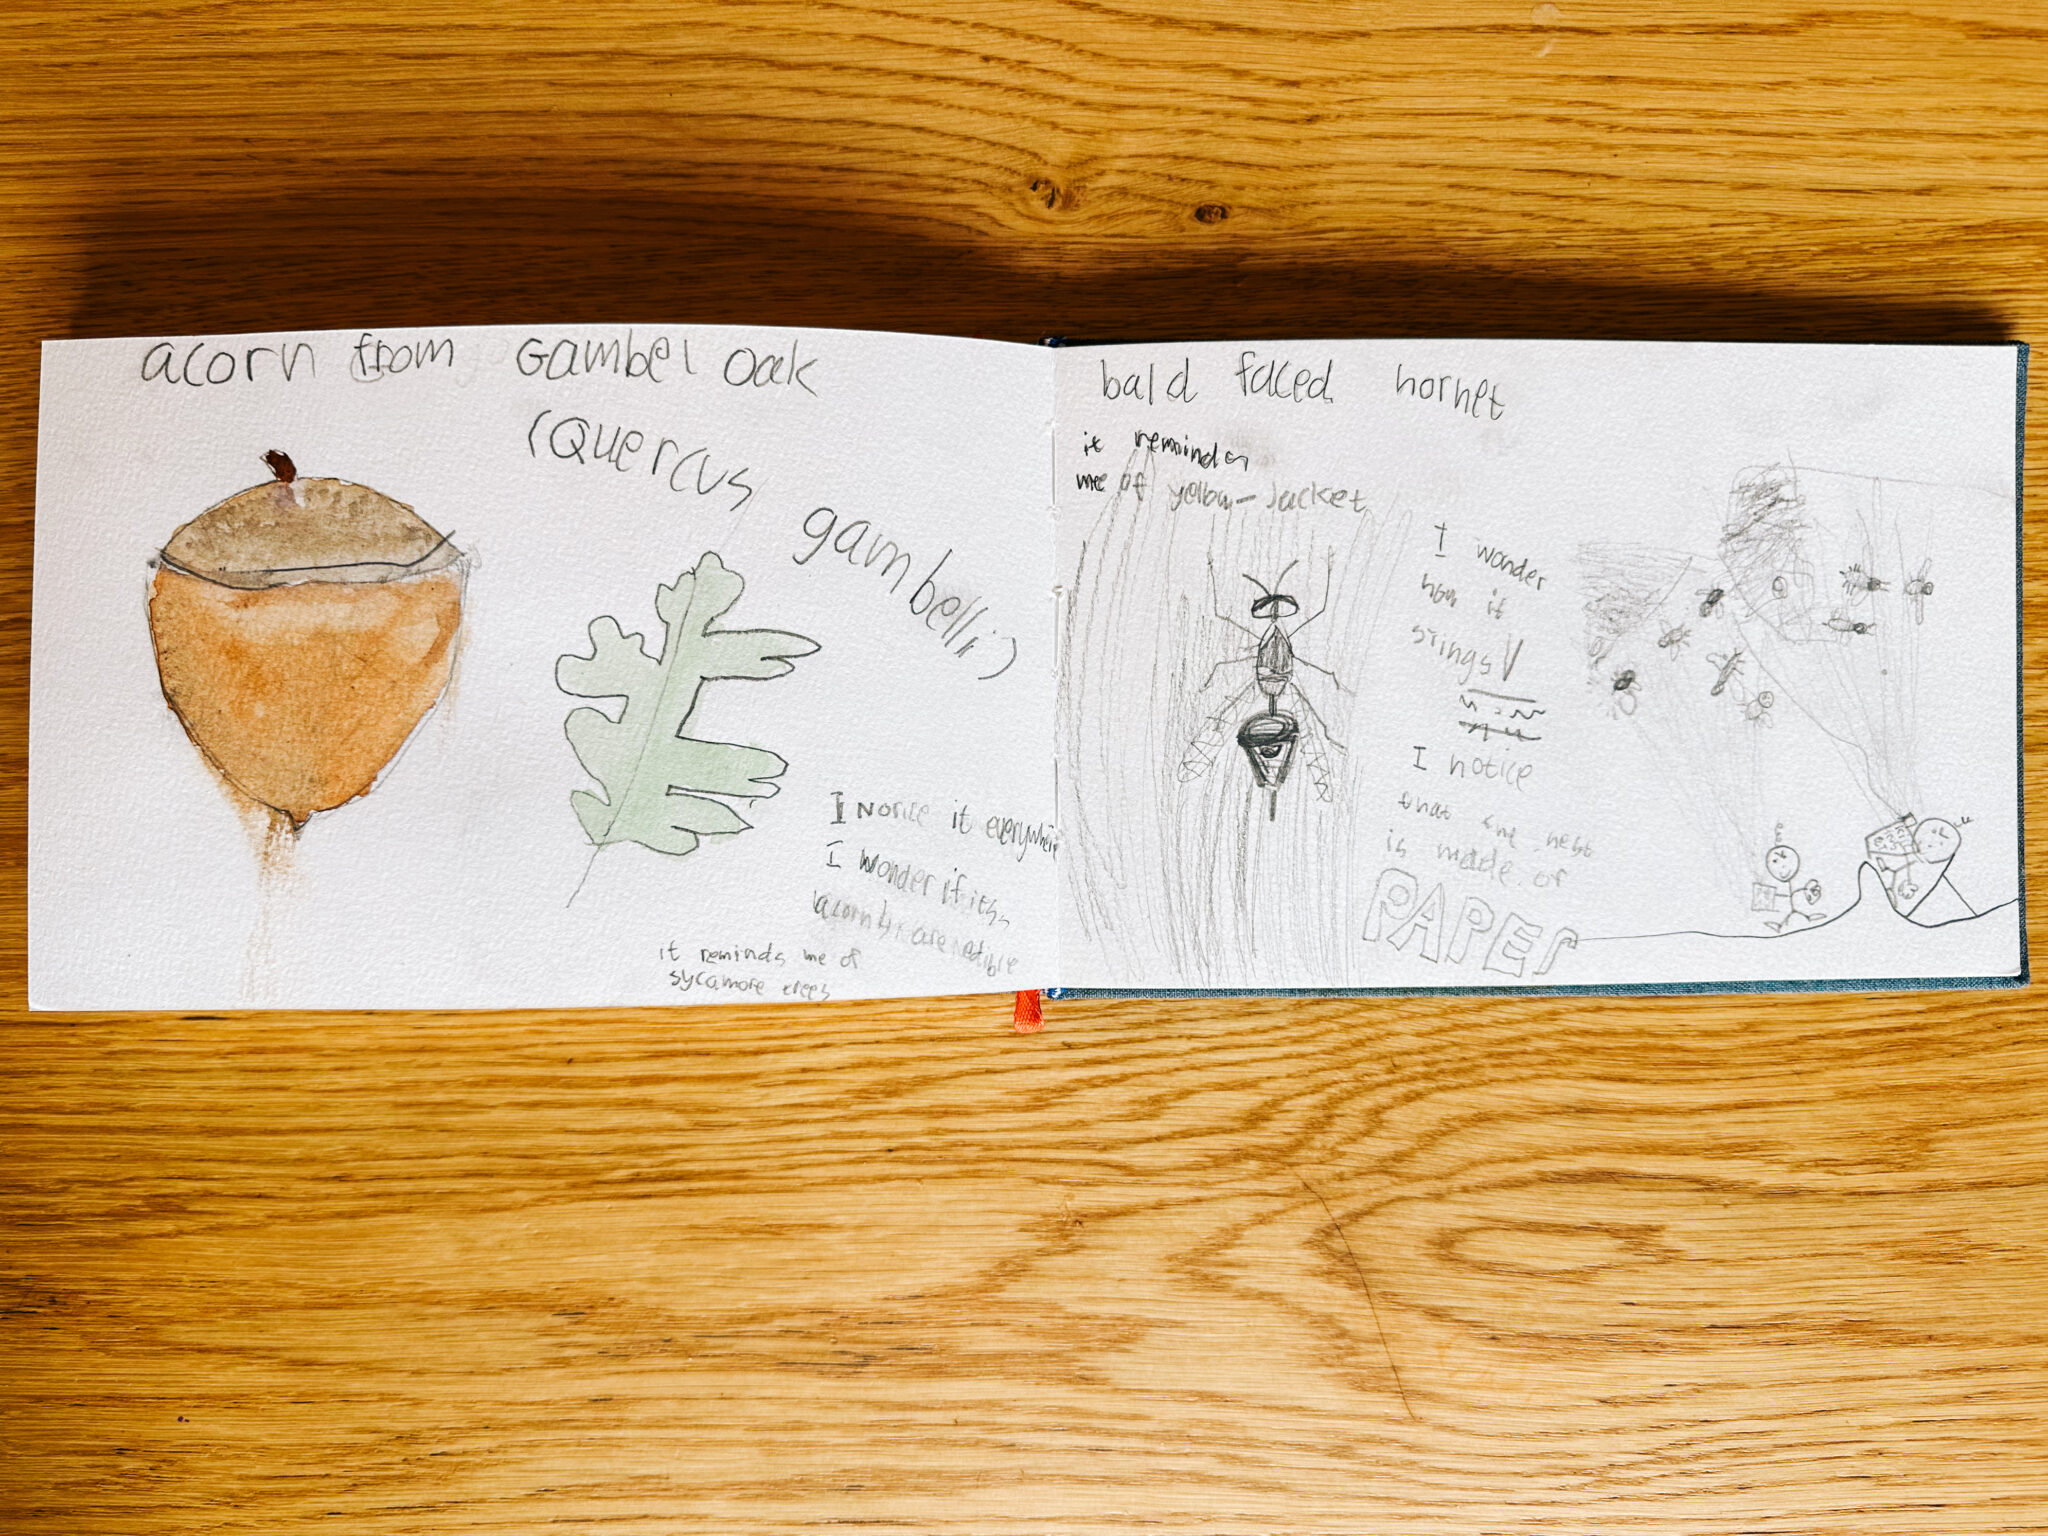 acorn from Gambel oak
(Quercus
gambelii)
I Notice it everywhere
I wonder if its
acorns are edible
it reminds me of
sycamore trees
bald faced hornet
it reminds
me of yellow-Jacket
I wonder
how it
stings
I notice
that the nest
is made of
PAPER